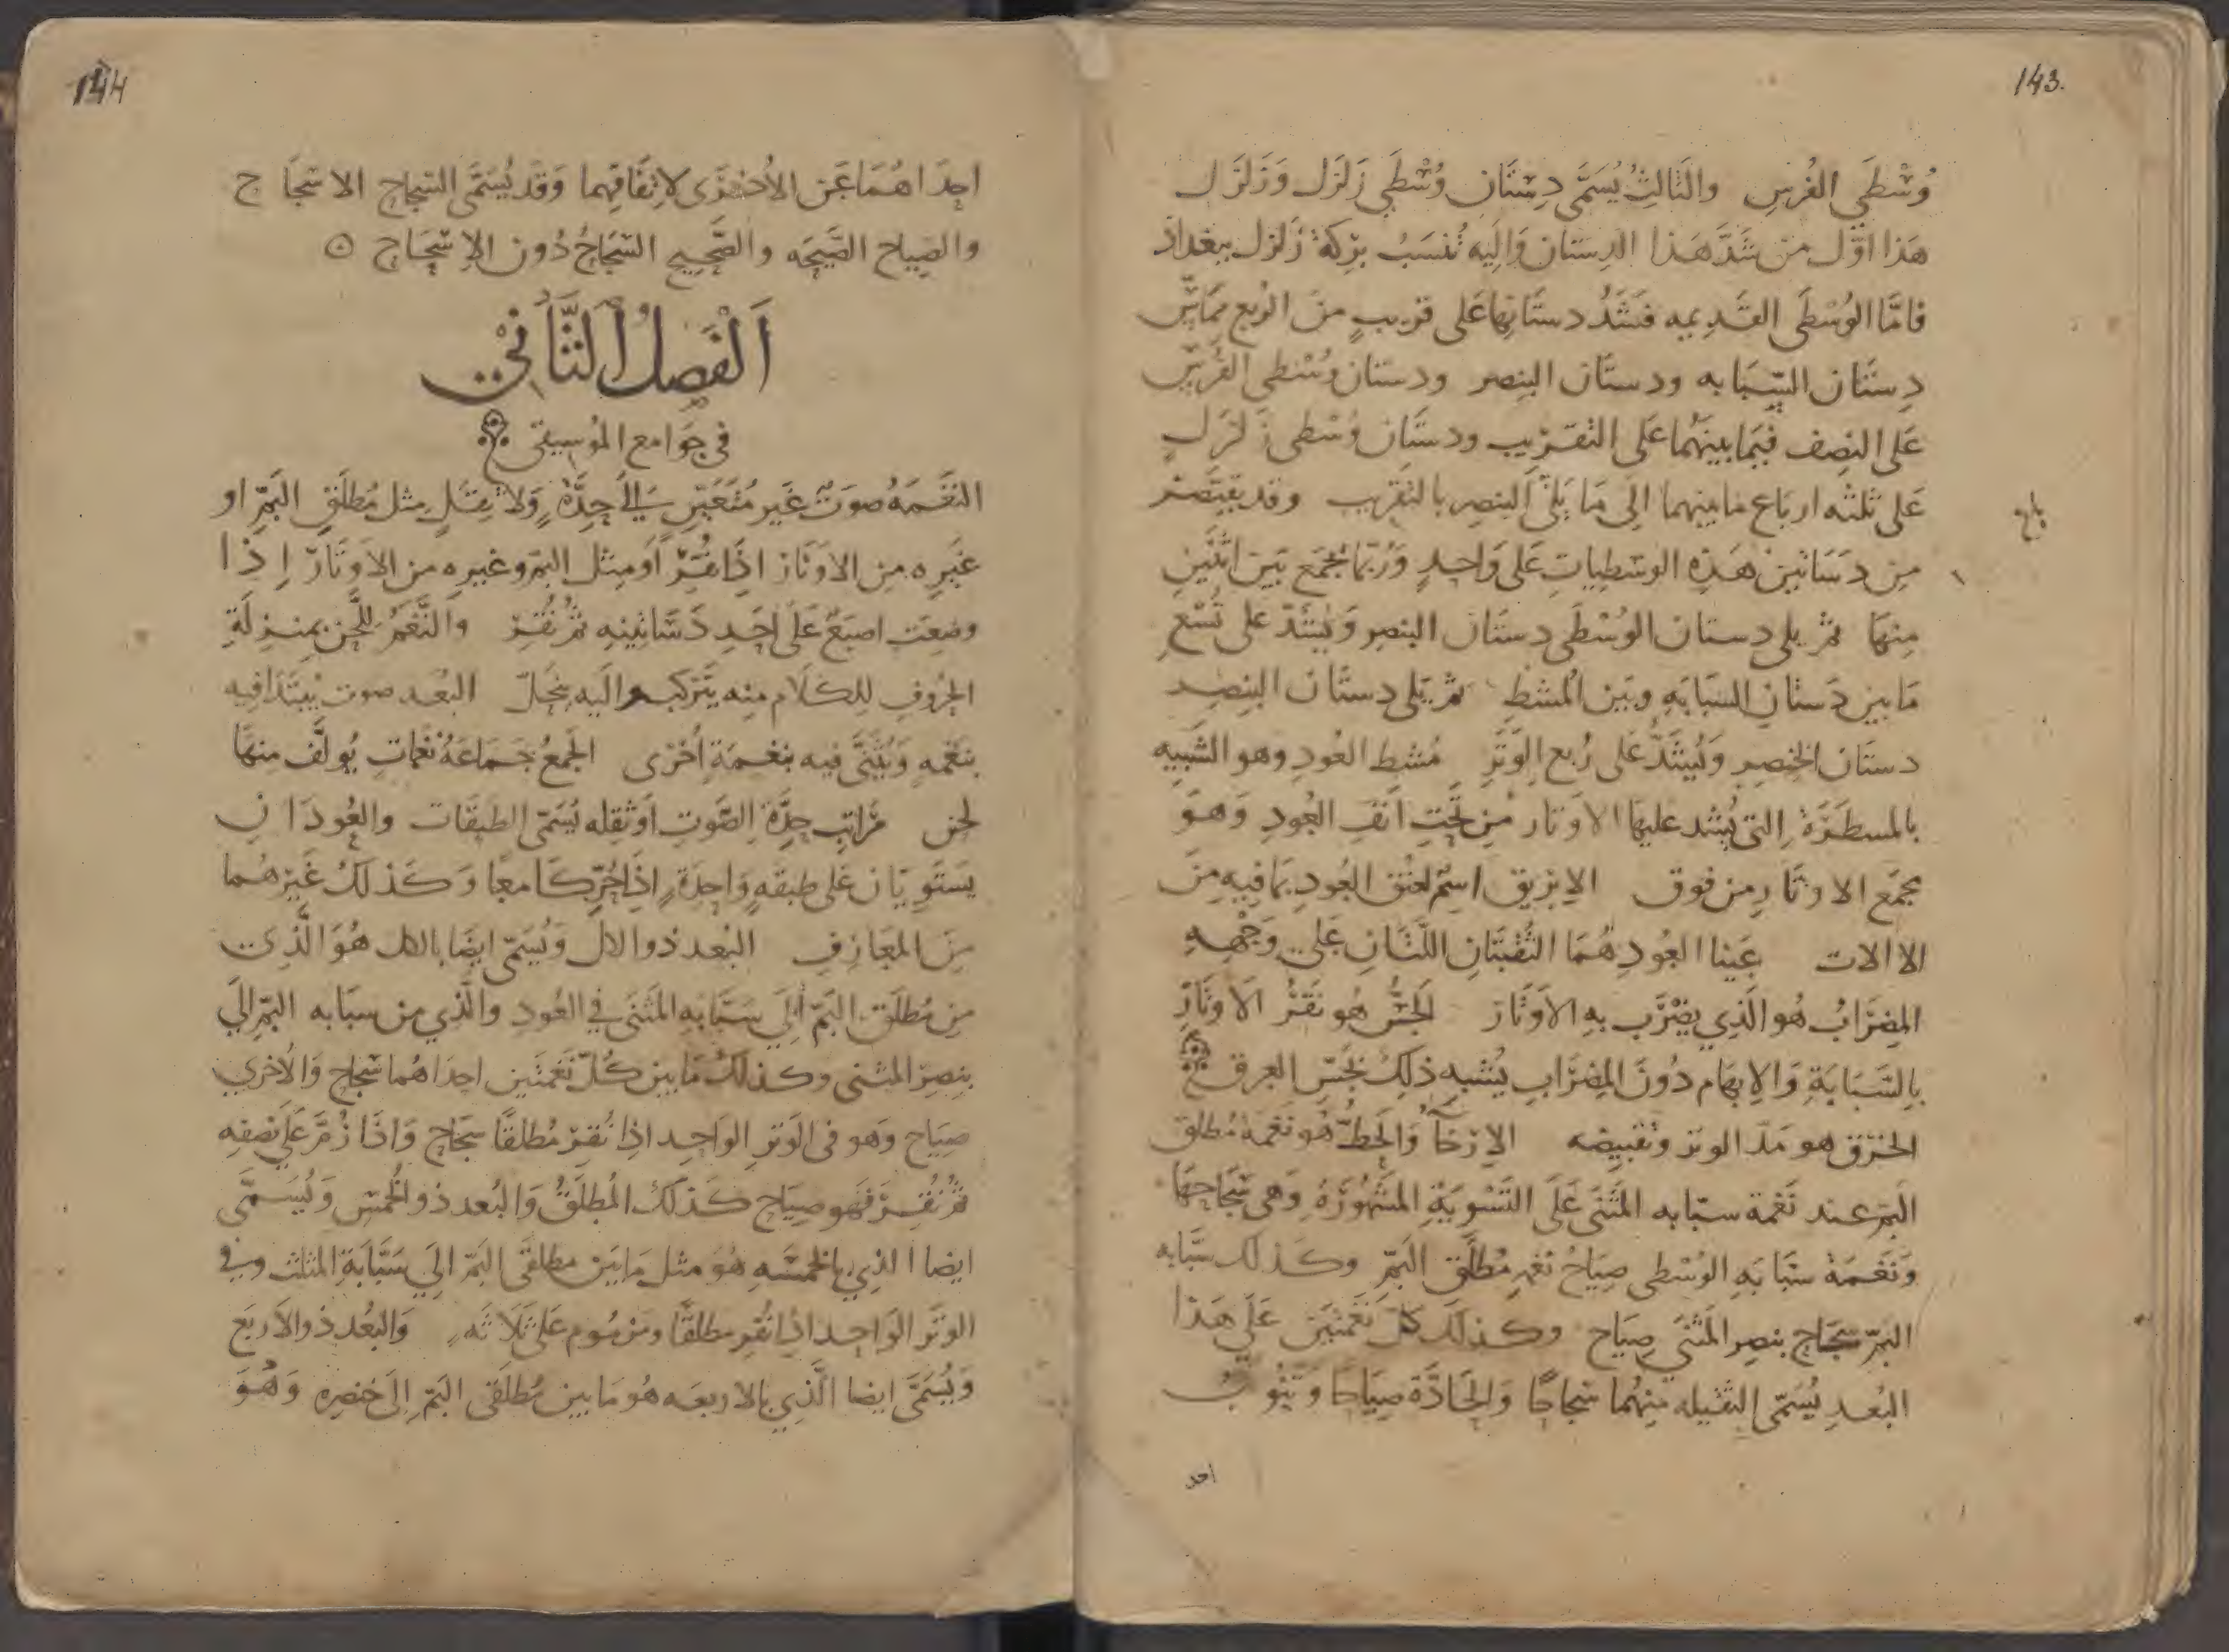 143.
وُسْطَي الفُرسِ والثَالثُ يُسَمَّى دِستَان وُسْطَي زَلزَل وَزَلزَل
هَذا اوّل من شَدَّ هَذا الدِستان وَالَيه تُنسَبُ بِرْكَة زَلزل ببغداذ
فامَّا الوُسْطَى القَدِيمه فَشَدُّ دستَانِهَا عَلى قريبٍ منَ الرُبع ممَّا بَين
دِستَان السَّبَابه ودستَان البنصر ودستان وُسْطى الفُرس
عَلى النِصف فيمَا بينَهُما عَلى التَقرْيبِ ودستَان وُسْطى زَلزَل
عَلى ثلثه ارباع مابينهما الى مَا يَلى البنصر بالتقريب وقد يقتَصر
مِن دَسَاتين هَذِهِ الوسْطيات عَلى وَاحِدٍ وَرُبَّمَا يُجمَع بَيْن اثنَينِ
منهَا ثم يلى دستان الوُسْطَى دستان البنصر وَيُشَدّ على تُسْعِ
مَا بين دَستان السَبَابَه وبَين المُشطِ ثم يَلى دستَان البِنصِر
دستَان الخِنصِر وَيُشَدُّ عَلى رُبع الوَتَرِ مُشط العُودِ وهو الشَبِيه
بالمسطَرَةِ التى يُشد عليهَا الاوتار من تَحتِ انَفُ العُودِ وَهو
مجمَع الاوتَارِ من فوق الإبريق اسْم لعُنق العُودِ بمَا فيه مِنَ
الاالات عَينا العُودِ هُمَا الثُقبَتَانِ اللَّتَانِ عَلى وَجْهِهِ
المِضرَابُ هُو الَّذِي يضرَب بهِ الاَوتَار الجَسُّ هُو نَقْرُ الاَوتَارِ
بِالسَّبَابَةِ وَالإبهَام دُونَ المِضرَابِ يُشبه ذلِكَ بجَسِّ العِرق
الخرق هو مَدّ الوتر وتقبيضه الإرْخَآ وَالحَطُّ هُو نَغمَة مُطلق
البَمّ عند نَغمة سبّابه المَثنَى عَلَى التَسْويَةِ المَشهُورَةِ وَهى سُجَاحهَا
وَنَغمَة سَبَابَه الوُسْطى صِيَاحُ نغم مُطلَق البَمِّ وكذلك سبَّابه
البَمّ سُجاح بنصِر المَثنَى صِيَاح وكذلَك كل نَغمتَين عَلَى هَذا
البُعدِ يُسَمّى الثقيله منهُما سُجاحًا وَالحَادَّة صيَاحًا وَتَنُوبُ
احد
144
احدَاهُمَا عَن الأُخرَى لاِتفَاقِهِما وَقد يُسَمَّى السُجاح الاسْجَاح
والصِياح الصَّيحَه والصَّحِيح السُجَاحُ دُون الإسْجَاح ۞
الفَصلُ الثَّاني
في جَوَامع المُوسيقى
النَغَمَهُ صَوتٌ غَير مُتَغَيِّر الى حِدَّةٍ وَلا ثِقَلٍ مثل مُطلَقِ البَمِّ او
غَيرِه مِن الاَوتَار اذَا نُقِرَ اَو مثل البَمّ وغيره من الاَوتَارِ إذا
وضعَت اصبَعٌ عَلى اَحَدِ دَسَاتينِه ثُم نُقِرَ وَالنَّغَمُ للَّحن بمنزلَةِ
الحُرُوفِ لِلكَلَام منه يَتَركب واليَه ينحَلّ البُعد صوت يُبتَدَا فيه
بنَغمه وَيُثَنَّى فيه بنغمَة أُخْرى الجَمعُ جَمَاعَةُ نَغَمَات يُولَّف منهَا
لحن مَرَاتب حِدَّة الصَّوتِ اَو ثقله يُسَمّى الطَبقَات والعُودَان
يَستَوِيَان عَلى طبقَهٍ وَاحِدَةٍ اذَا حُرِّكَا معًا وَكذلكَ غَيرهُما
مِنَ المعَازِفِ البُعد ذو الكل وَيُسَمّى ايضًا بالكل هُوَ الَّذِى
مِن مُطلَق البَمّ الى سَبَّابَه المَثنَى في العُودِ والَّذِي من سَبَابه البَمّ الَي
بنصِر المثنى وكذلك مَا بين كُلّ نَغمَتَين احِدَاهُما سُجاح وَالأخري
صِيَاح وَهو فى الوَترِ الوَاحِد اذِا نُقرَ مُطلقًا سُجَاح وَاذَا زُمَّ عَلى نصفِه
ثُم نُقِرَ فَهو صِيَاح كَذلك المُطلَقُ وَالبُعد ذو الخَمس وَيُسَمَّى
ايضا الذِي بالخمسَه هُوَ مثل مَا بَين مطلقى البَمّ الَي سَبَّابَة المثلث وفي
الوتَر الوَاحِد اذِا نُقر مطلقًا ومزموم عَلى ثَلاثَه وَالبُعد ذو الاَربَع
وَيُسَمَّى ايضا الَّذِي بالاربعَه هُو مَا بين مُطلَقى البَمّ الَى خنصره وَهُوَ